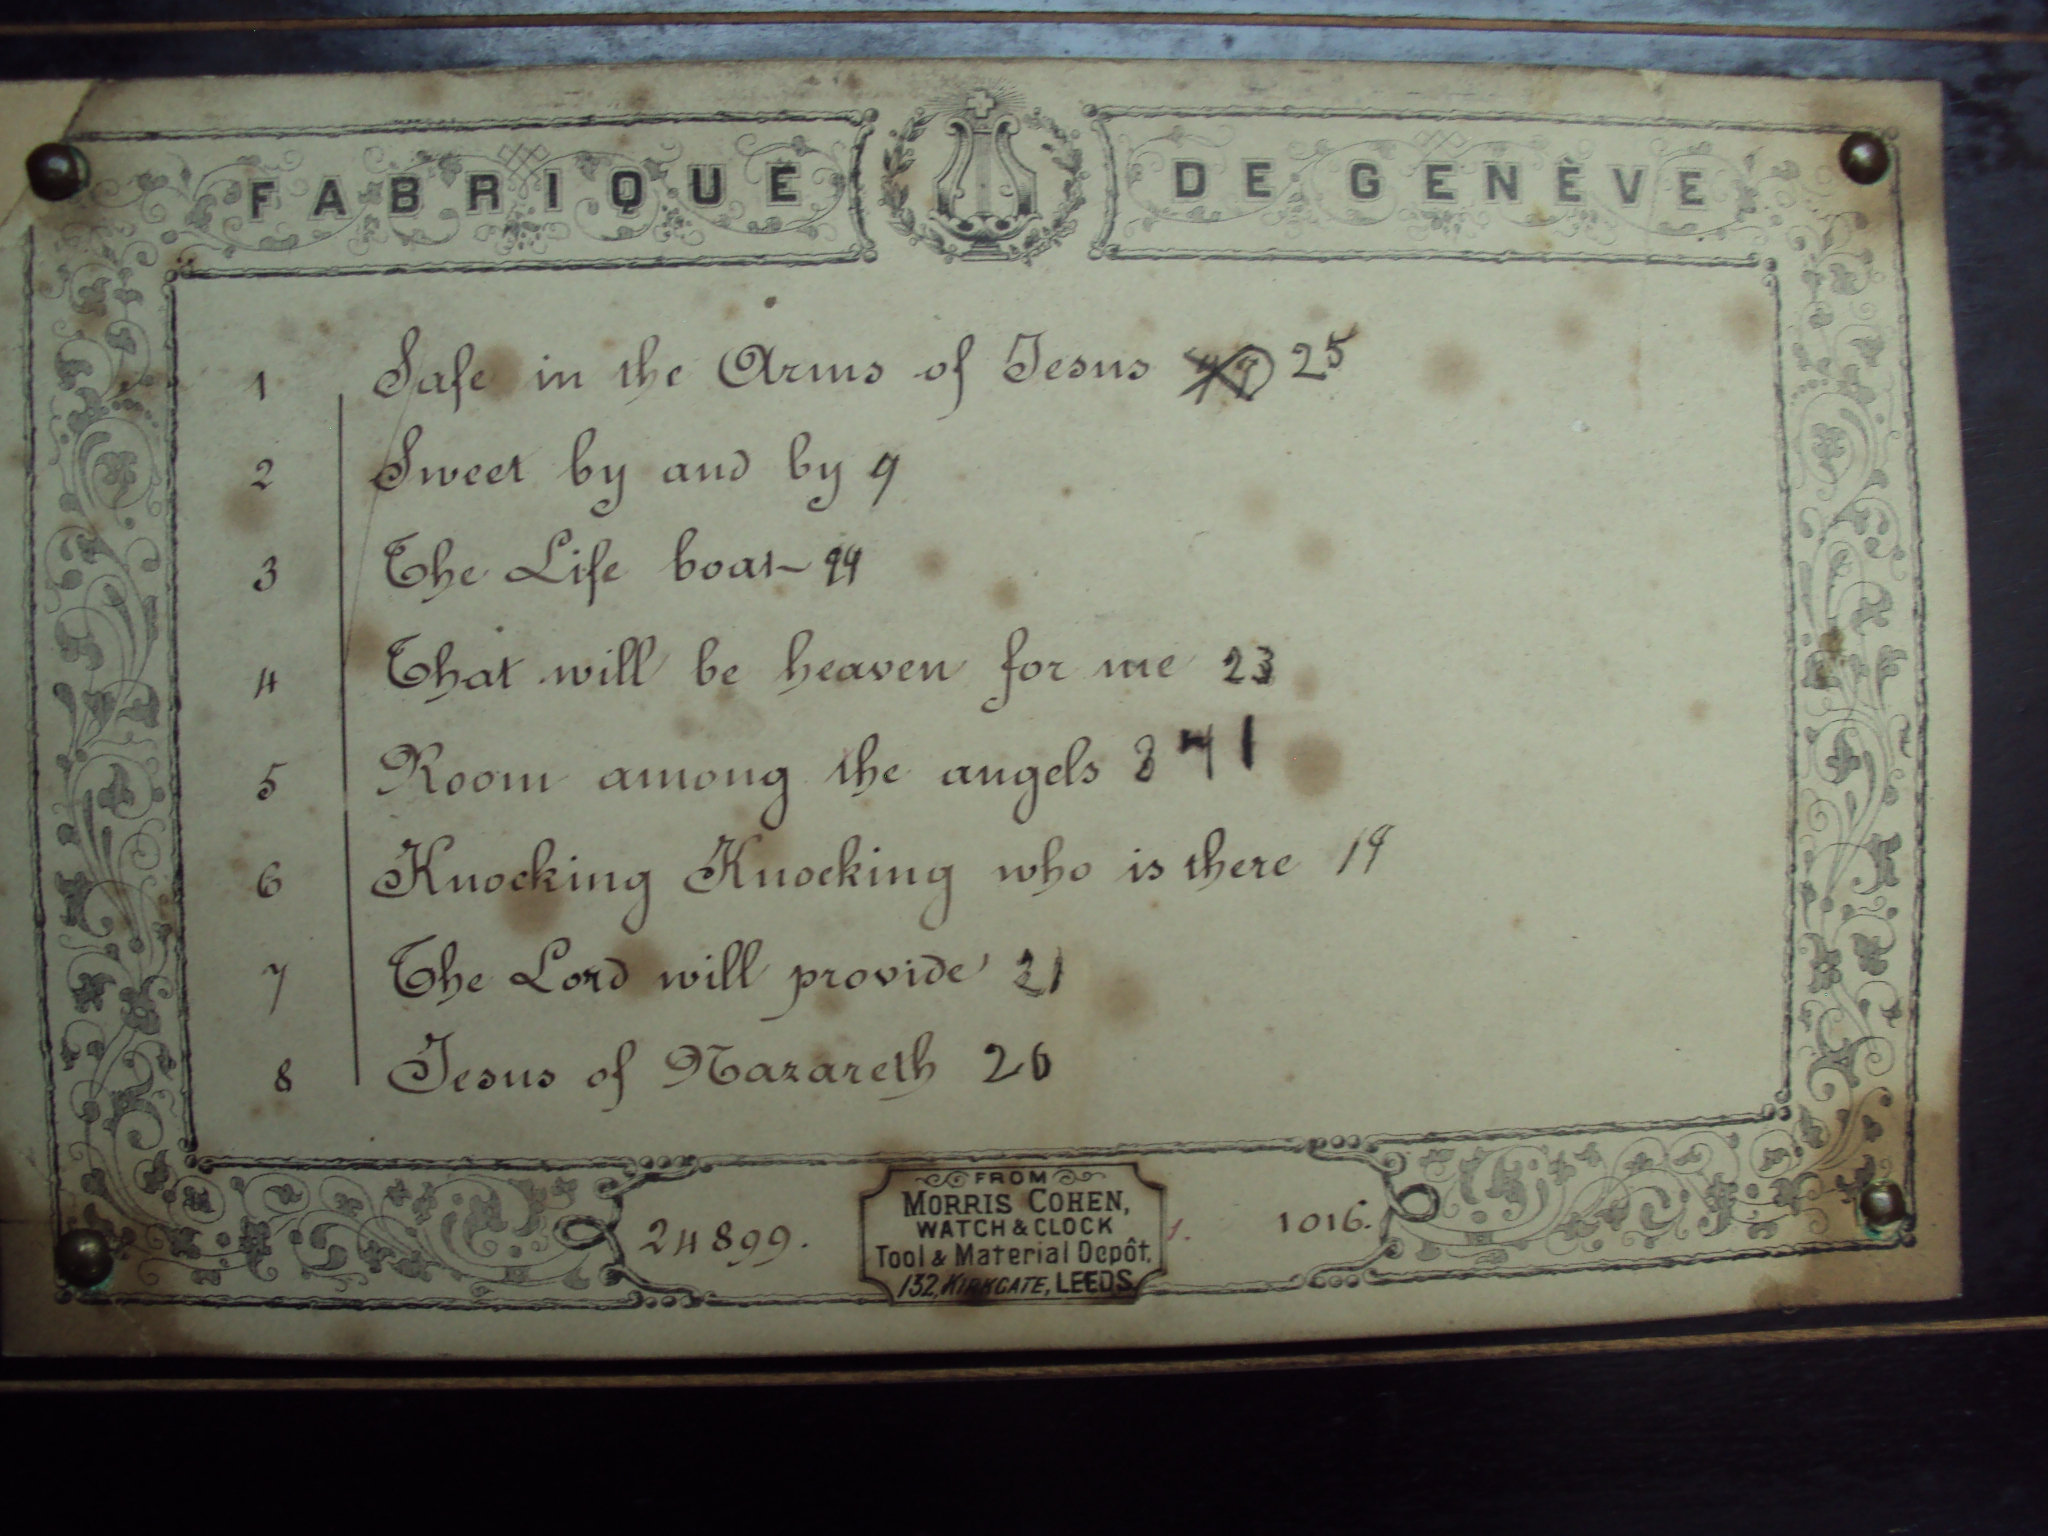 FABRIQUE DE GENÈVE
1 Safe in the Arms of Jesus 25
2 Sweet by and by 9
3 The Life boat
4 That will be heaven for me 23
5 Room among the angels
6 Knocking Knocking who is there 19
7 The Lord will provide 21
8 Jesus of Nazareth 26
FROM
MORRIS COHEN,
WATCH & CLOCK
24899. Tool & Material Depôt, 1. 1016.
132, KIRKGATE, LEEDS